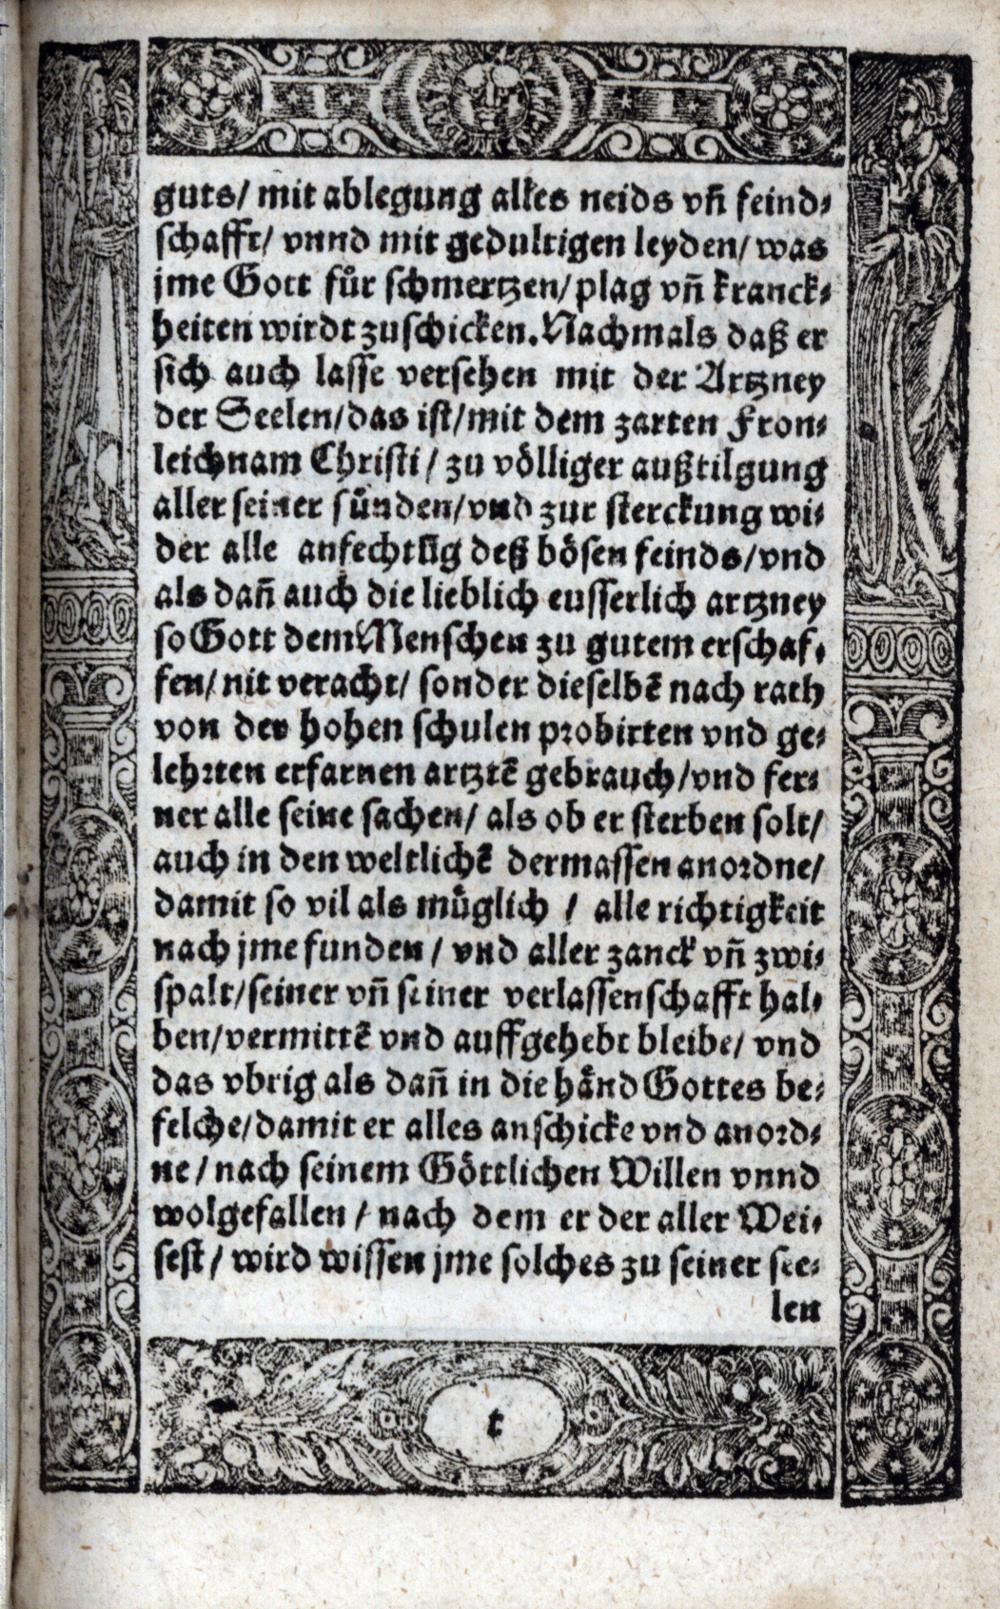 guts/ mit ablegung alles neids vñ feind⸗
schafft/ vnnd mit gedultigen leyden/ was
jme Gott fuͤr schmertzen/ plag vñ kranck⸗
heiten wirdt zuschicken. Nachmals daß er
sich auch lasse versehen mit der Artzney
der Seelen/ das ist/ mit dem zarten Fron⸗
leichnam Christi/ zu voͤlliger außtilgung
aller seiner suͤnden/ vnd zur sterckung wi⸗
der alle anfechtūg deß boͤsen feinds/ vnd
als dañ auch die lieblich eusserlich artzney
so Gott dem Menschen zu gutem erschaf⸗
fen/ nit veracht/ sonder dieselbē nach rath
von der hohen schulen probirten vnd ge⸗
lehrten erfarnen artztē gebrauch/ vnd fer⸗
ner alle seine sachen/ als ob er sterben solt/
auch in den weltlichē dermassen anordne/
damit so vil als muͤglich / alle richtigkeit
nach jme funden/ vnd aller zanck vñ zwi⸗
spalt/ seiner vñ seiner verlassenschafft hal⸗
ben/ vermittē vnd auffgehebt bleibe/ vnd
das vbrig als dañ in die haͤnd Gottes be⸗
felche/ damit er alles anschicke vnd anord⸗
ne/ nach seinem Goͤttlichen Willen vnnd
wolgefallen / nach dem er der aller Wei⸗
sest/ wird wissen jme solches zu seiner see⸗
len
t